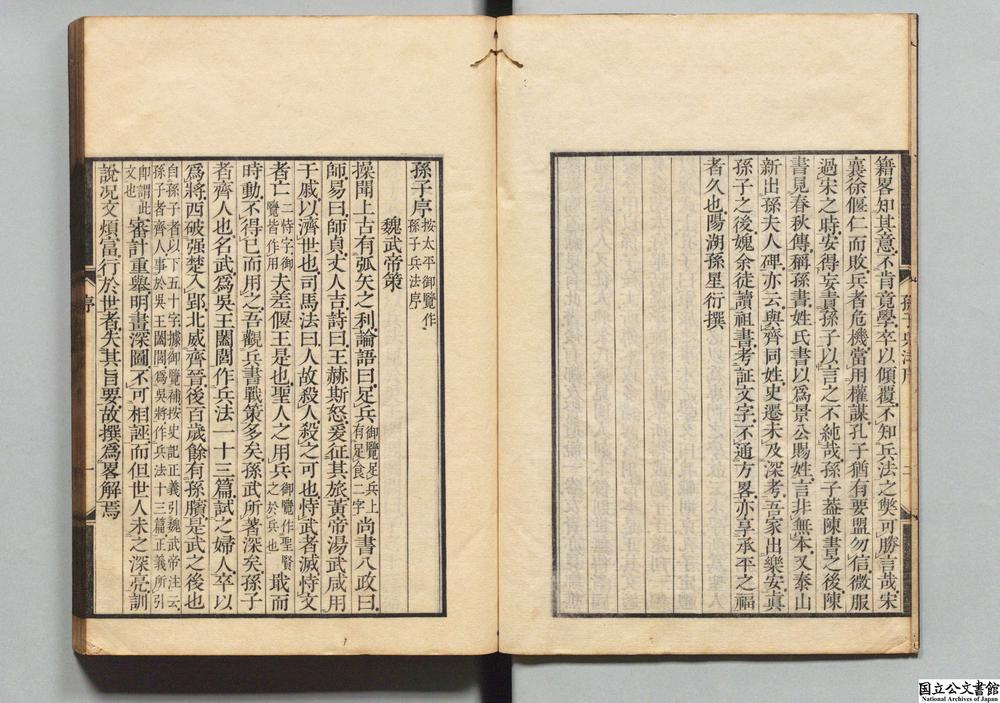 籍畧知其意不肯竟學卒以傾覆不知兵法之弊可勝言哉宋
襄徐偃仁而敗兵者危機當用權謀孔子猶有要盟勿信微服
過宋之時安得妄責孫子以言之不純哉孫子葢陳書之後陳
書見春秋傳稱孫書姓氏書以爲景公賜姓言非無本又泰山
新出孫夫人碑亦云與齊同姓史遷未及深考吾家出樂安眞
孫子之後媿余徒讀祖書考証文字不通方畧亦享承平之福
者久也陽湖孫星衍撰
孫子序
按太平御覽作
孫子兵法序
魏武帝策
操聞上古有弧矢之利論語曰足兵
御覽足兵上
有足食二字
尚書八政曰
師易曰師貞丈人吉詩曰王赫斯怒爰征其旅黃帝湯武咸用
干戚以濟世也司馬法曰人故殺人殺之可也恃武者滅恃文
者亡
二恃字御
覽皆作用
夫差偃王是也聖人之用兵
御覽作聖賢
之於兵也
戢而
時動不得已而用之吾觀兵書戰策多矣孫武所著深矣孫子
者齊人也名武爲吳王闔閭作兵法一十三篇試之婦人卒以
爲將西破强楚入郢北威齊晉後百歲餘有孫臏是武之後也
自孫子者以下五十字據御覽補按史記正義引魏武帝注云
孫子者齊人事於吳王闔閭爲吳將作兵法十三篇正義所引
卽謂此
文也
審計重舉明畫深圖不可相誣而但世人未之深亮訓
說況文煩富行於世者失其旨要故撰爲畧解焉
序
一
国立公文書館
National Archives of Japan